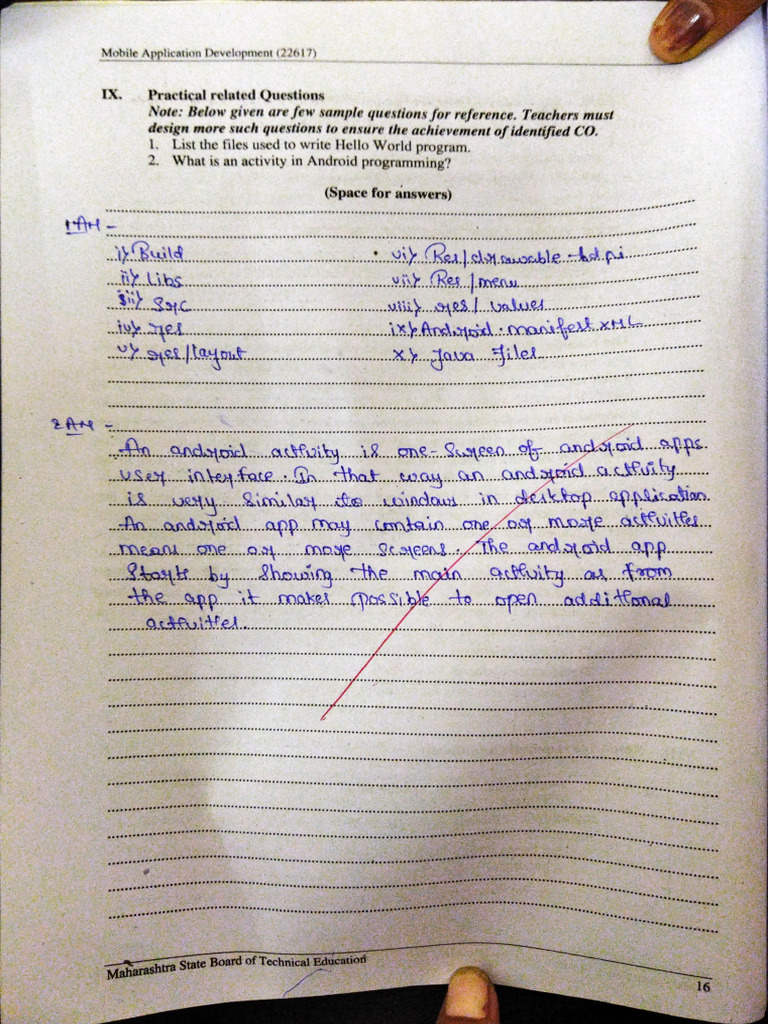 Mobile Application Development (22617)
IX. Practical related Questions
Note: Below given are few sample questions for reference. Teachers must
design more such questions to ensure the achievement of identified CO.
1. List the files used to write Hello World program.
2. What is an activity in Android programming?
(Space for answers)
1 AN -
i) Build
ii) Libs
iii) Src
iv) res
v) res/layout
vi) Res/drawable-hdpi
vii) Res/menu
viii) res/values
ix) Android.manifest XML
x) Java Files
2 AN -
An android activity is one-screen of android apps
user interface. In that way an android activity
is very similar to windows in desktop application
An android app may contain one or more activities
means one or more screens. The android app
Starts by showing the main activity as from
the app it makes possible to open additional
activities.
Maharashtra State Board of Technical Education
16